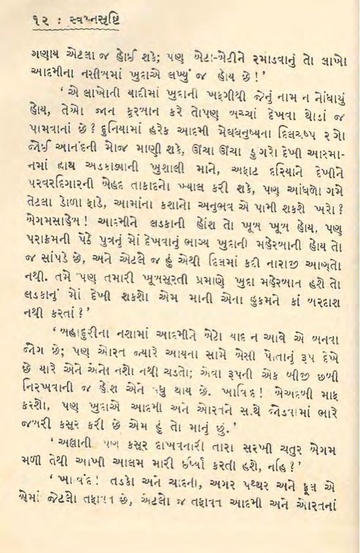 ૧૨ : સ્વપ્નસૃષ્ટિ
ગણાય એટલા જ હોઈ શકે; પણ બેટા-બેટીને રમાડવાનું તો લાખો
આદમીના નસીબમાં ખુદાએ લખ્યું જ હોય છે!'
' એ લાખોની યાદીમાં ખુદાની ખફગીથી જેનું નામ ન નોંધાયું
હોય, તેઓ જાન કુરબાન કરે તોપણ બચ્ચાં દેખવા થોડાં જ
પામવાનાં છે? દુનિયામાં હરેક આદમી મેઘધનુષ્યના દિલચસ્પ રંગો
જોઈ આનંદની મોજ માણી શકે, ઊંચા ઊંચા ડુંગરો દેખી આસ્મા-
નમાં હાથ અડકાવ્યાની ખુશાલી માને, અફાટ દરિયાને દેખીને
પરવરદિગારની બેહદ તાકાદનો ખ્યાલ કરી શકે, પણ આંધળો ગમે
તેટલા ડોળા ફાડે, આમાંના કશાનો અનુભવ એ પામી શકશે ખરો?
બેગમસાહેબ! આદમીને લડકાની હોંશ તો ખૂબ ખૂબ હોય, પણ
પરાક્રમની પેઠે પુત્રનું મોં દેખવાનું ભાગ્ય ખુદાની મહેરબાની હોય તો
જ સાંપડે છે, અને એટલે જ હું એથી દિલમાં કદી નારાજી આણતો
નથી. તમે પણ તમારી ખૂબસૂરતી પ્રમાણે ખુદા મહેરબાન હશે તો
લડકાનું મોં દેખી શકશો એમ માની એના હુકમને કાં બરદાશ
નથી કરતાં?'
' બહાદુરીના નશામાં આદમીને બેટો યાદ ન આવે એ બનવા
જોગ છે; પણ ઓરત જ્યારે આયના સામે બેસી પોતાનું રૂપ દેખે
છે ત્યારે એને એનો નશો નથી ચડતો; એવા રૂપની એક બીજી છબી
નિરખવાની જ હોંશ એને વધુ થાય છે. ખાવિંદ! બેઅદબી માફ
કરશો, પણ ખુદાએ આદમી અને ઓરતને સાથે જોડવામાં ભારે
જબરી કસર કરી છે એમ હું તો માનું છું.'
' અલ્લાની પણ કસર દાખવનારી તારા સરખી ચતુર બેગમ
મળી તેથી આખી આલમ મારી ઈર્ષ્યા કરતી હશે, નહિ?'
' ખાવંદ! તડકો અને ચાંદની, અગર પથ્થર અને ફૂલ એ
બેમાં જેટલો તફાવત છે, એટલો જ તફાવત આદમી અને ઓરતનાં